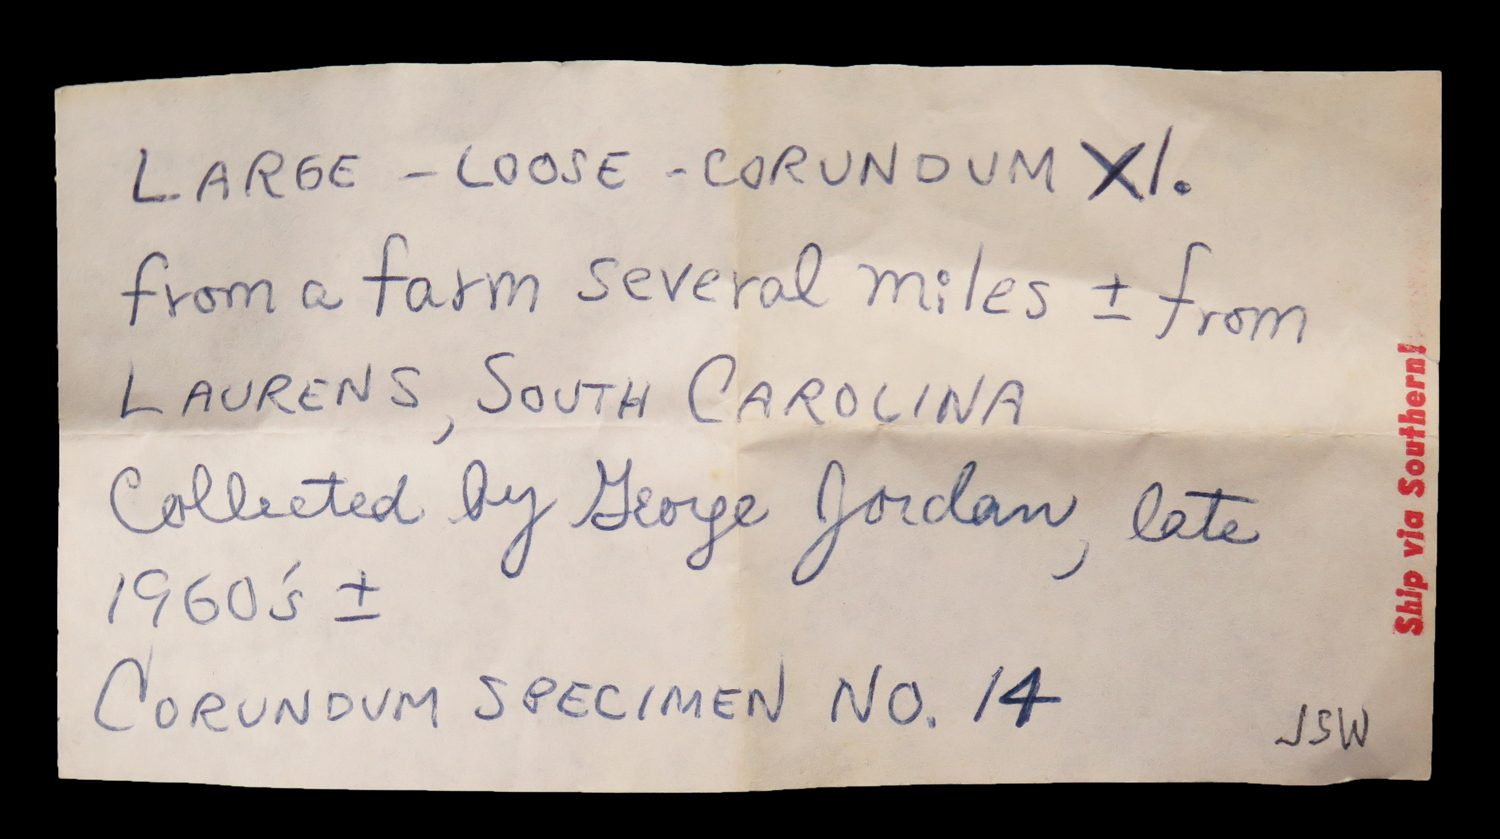 LARGE - LOOSE - CORUNDUM Xl.
from a farm several miles ± from
LAURENS, SOUTH CAROLINA
Collected by George Jordan, late
1960's ±
CORUNDUM SPECIMEN NO. 14
JSW
Ship via Southern!